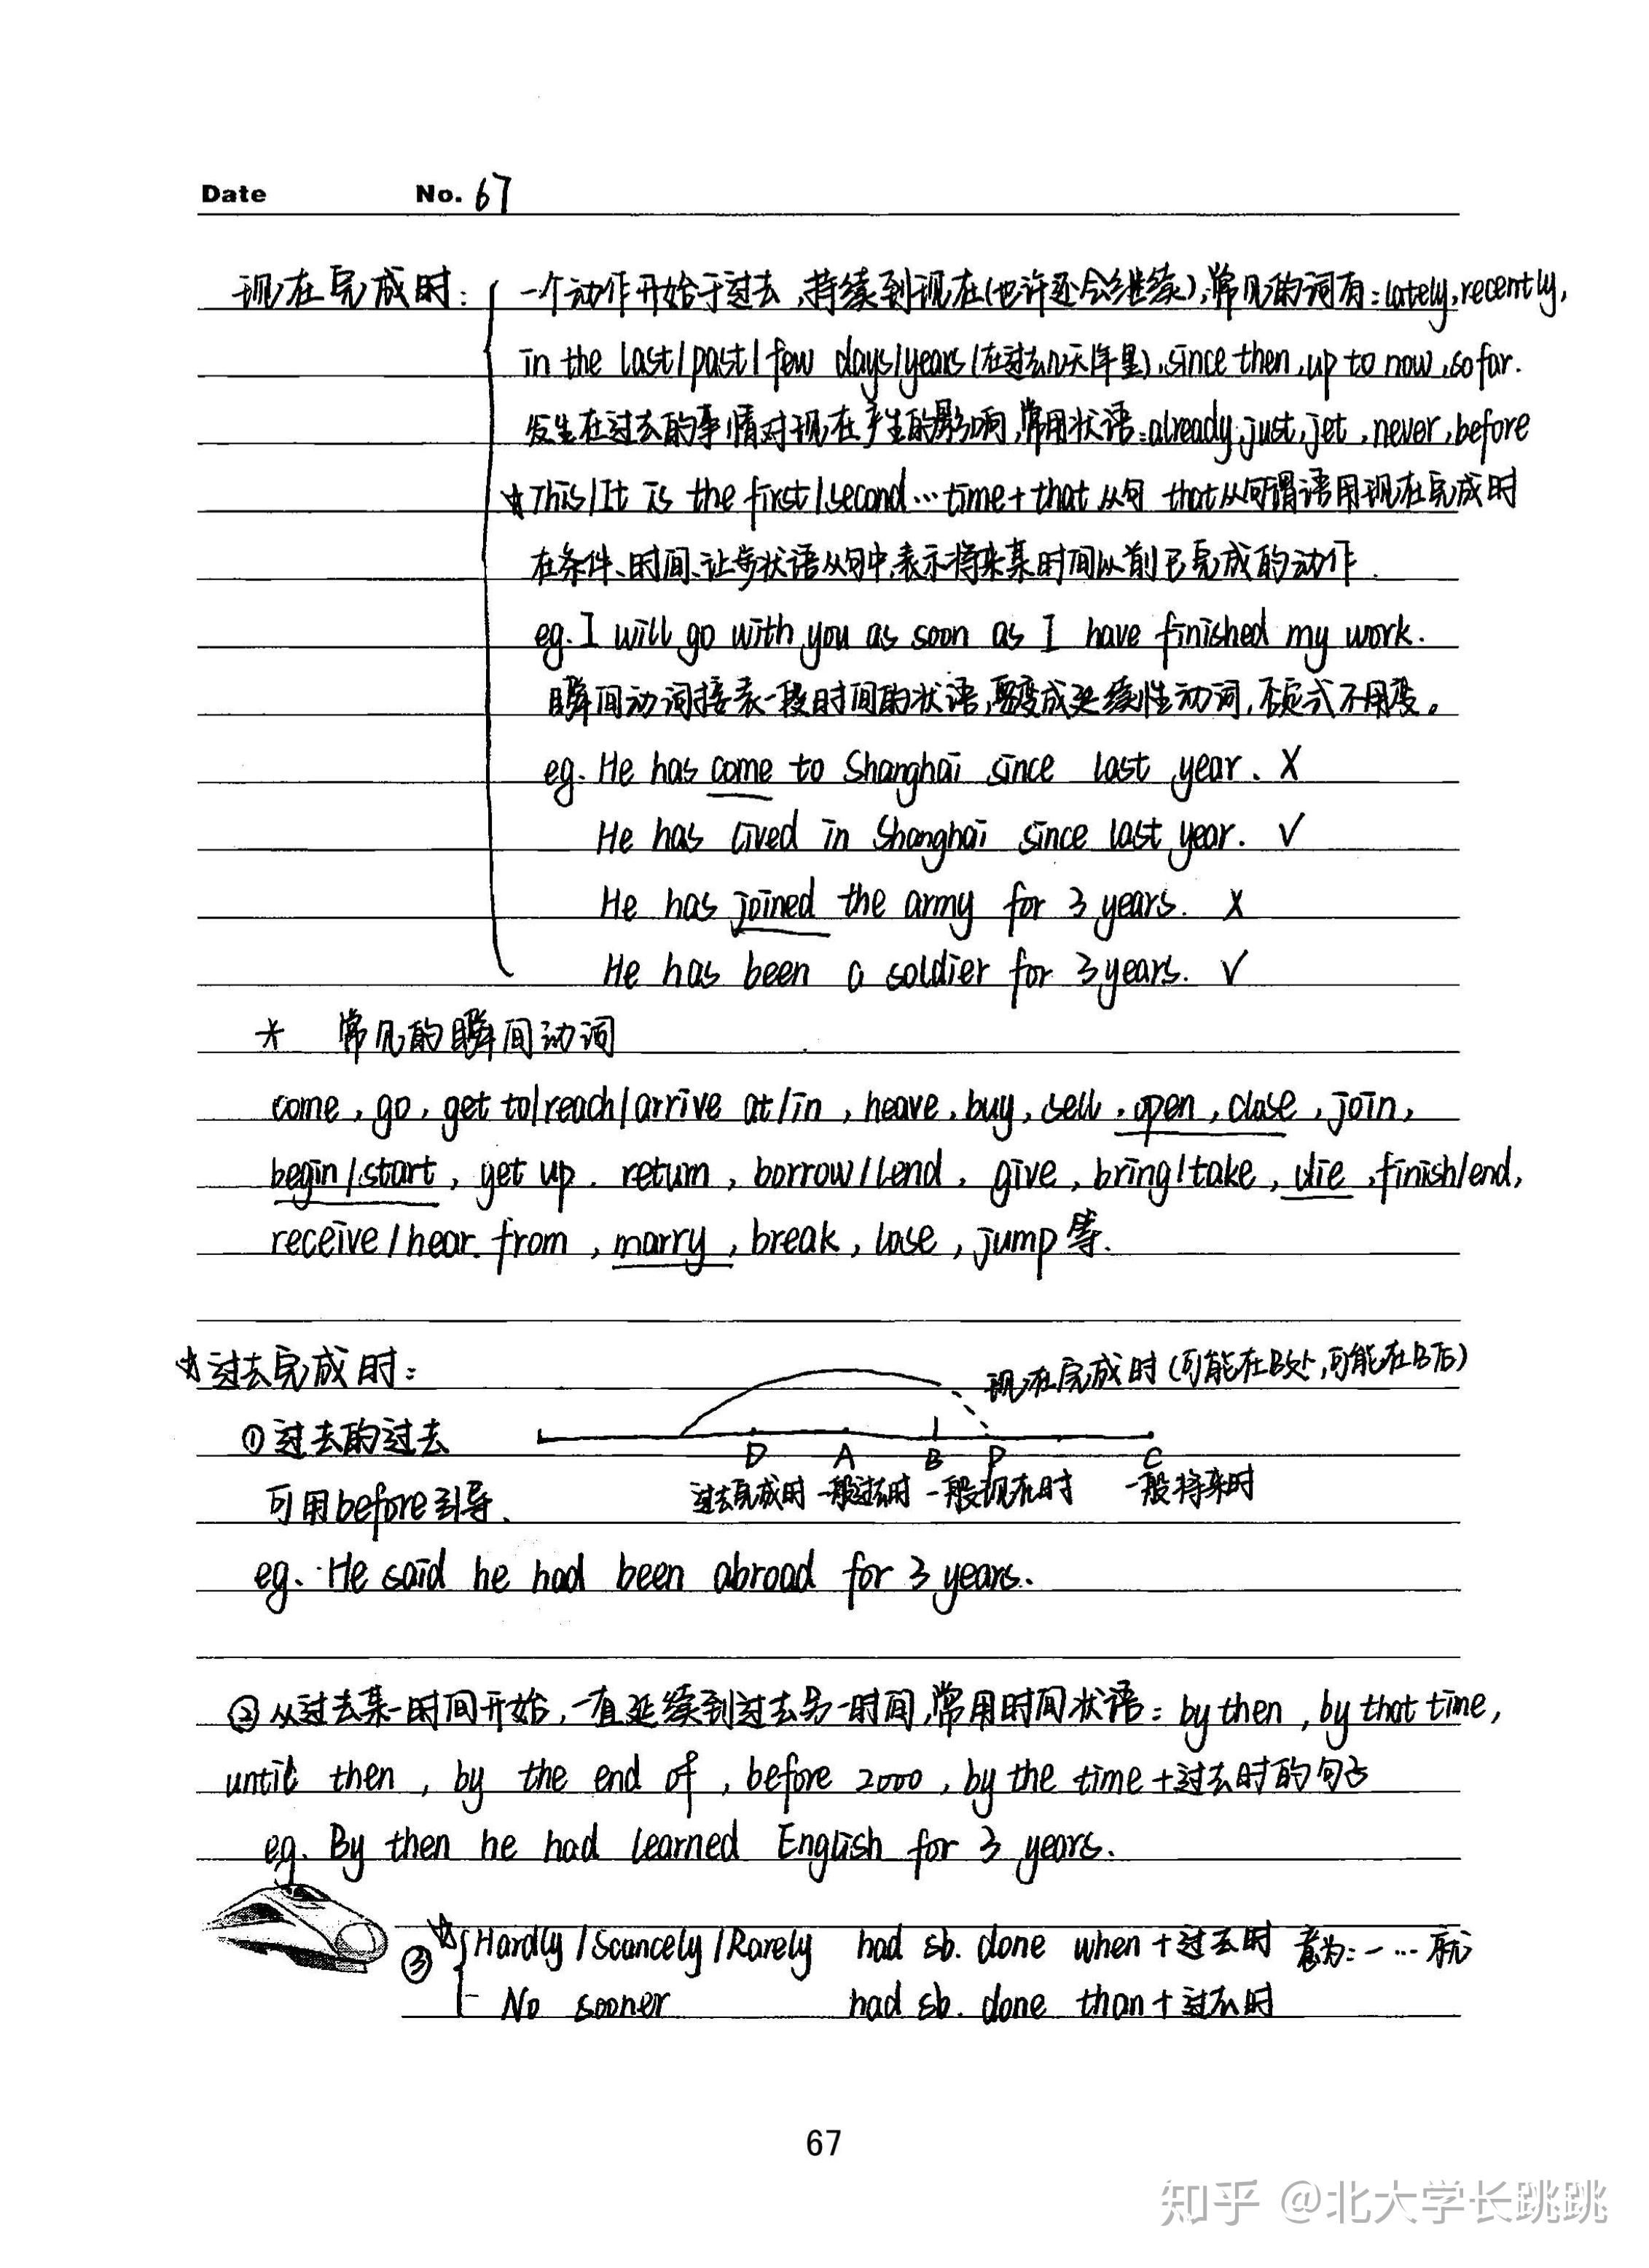 Date No. 67
现在完成时: 一个动作开始于过去,持续到现在(也许还会继续),常见的词有:lately,recently,
in the last/past/few days/years(在过去几天/年里),since then,up to now,so far.
发生在过去的事情对现在产生的影响,常用状语:already,just,jet,never,before
☆This/It is the first/second…time+that从句 that从句谓语用现在完成时
在条件、时间、让步状语从句中,表示将来某时间以前已完成的动作.
eg.I will go with you as soon as I have finished my work.
瞬间动词接表一段时间的状语,要变成延续性动词,否定式不用变。
eg. He has come to Shanghai since last year. X
He has lived in Shanghai since last year. √
He has joined the army for 3 years. X
He has been a soldier for 3 years. √
* 常见的瞬间动词
come, go, get to/reach/arrive at/in, heave, buy, sell, open, close, join,
begin/start, get up, return, borrow/lend, give, bring/take, die, finish/end,
receive/hear from, marry, break, lose, jump等.
☆过去完成时:
现在完成时(可能在B处,可能在B后)
①过去的过去
D A B P C
可用before引导.
过去完成时 一般过去时 一般现在时 一般将来时
eg. He said he had been abroad for 3 years.
②从过去某一时间开始,一直延续到过去另一时间,常用时间状语:by then, by that time,
until then, by the end of, before 2000, by the time+过去时的句子
eg. By then he had learned English for 3 years.
③ ☆Hardly/Scancely/Rarely had sb. done when+过去时 意为:一…就
No sooner had sb. done than+过去时
67
知乎 @北大学长跳跳